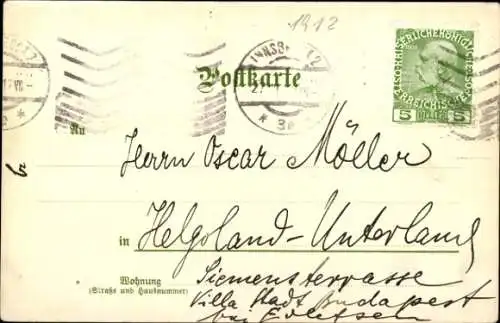 1912
INNSBRUCK 2
Postkarte
KAISERLICHE KÖNIGLICHE ÖSTERREICHISCHE POST
5 HELLER 5
An
Herrn Oscar Möller
in Helgoland-Unterland
Wohnung
(Straße und Hausnummer)
Siemensterrasse
Villa Stadt Budapest
bei